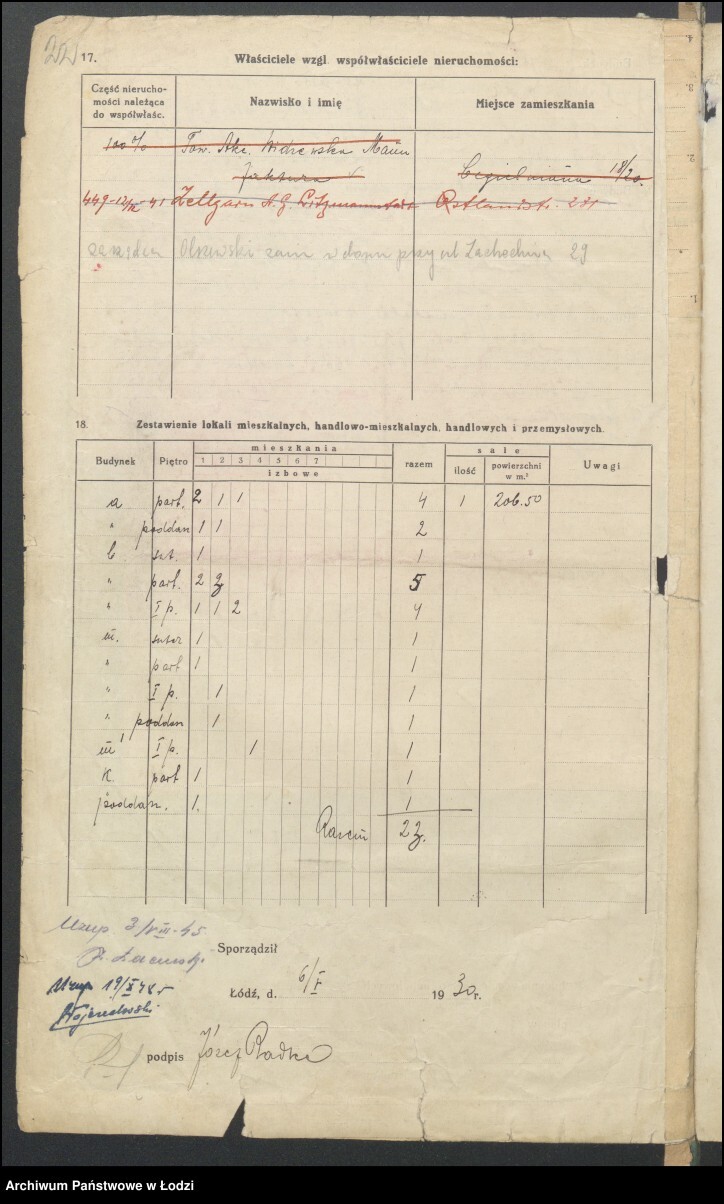 17. Właściciele wzgl. współwłaściciele nieruchomości:
Część nierucho-
mości należąca
do współwłaśc.
Nazwisko i imię
Miejsce zamieszkania
100% Tow. Akc. Widzewska Manu
faktura
18/20.
41 Zellgarn A. G. Litzmannstadt 271
Olszewski zam w domu przy ul 29
18. Zestawienie lokali mieszkalnych, handlowo-mieszkalnych, handlowych i przemysłowych.
Budynek Piętro mieszkania razem sale Uwagi
1 2 3 4 5 6 7
izbowe
ilość powierzchni
w m.²
a part. 2 1 1 4 1 206.50
" poddan 1 1 2
b sut. 1 1
" part. 2 5
" I p. 1 1 2 4
m. suter 1 1
" part 1 1
" I p. 1 1
" poddan 1 1
m I p. 1 1
k. part 1 1
poddan. 1. 1
Razem
Uzup. 3/VIII-45
Sporządził
Uzup 19/X 48 r
Łódź, d. 6/V 1930 r.
Wojciechowski
podpis Józef Radke
Archiwum Państwowe w Łodzi